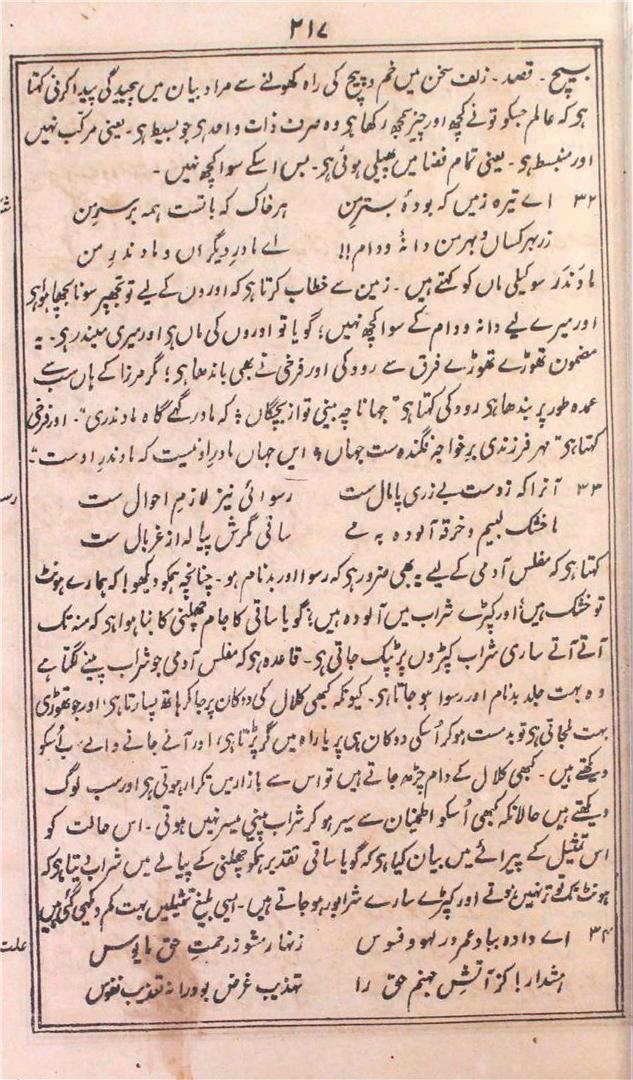 ۲۱۷
بسیج - قصد - زلف سخن میں خم و پیچ کی راہ کھولنے سے مراد بیان میں پیچیدگی پیدا کرنی کہتا
ہی کہ عالم جسکو تونے کچھ اور چیز سمجھ رکھا ہی وہ صرف ذات واحد ہی جو بسیط ہی۔ یعنی مرکب نہیں
اور منبسط ہی۔ یعنی تمام فضا میں پھیلی ہوئی ہی۔ بس اسکے سوا کچھ نہیں۔
۳۲ اے تیرہ زمیں کہ بودۂ بسترِ من ہر خاک کہ با تست ہمہ بر سرِ من
زر بہر کساں و بہر من دانۂ و دام!! اے مادرِ دیگراں و مادندرِ من
مادَندَر سوتیلی ماں کو کہتے ہیں۔ زمین سے خطاب کرتا ہی کہ اوروں کے لیے تو تجھپر سونا بچھا ہوا ہی
اور میرے لیے دانہ و دام کے سوا کچھ نہیں؛ گویا تو اوروں کی ماں ہی اور میری میندر ہی۔ یہ
مضمون تھوڑے تھوڑے فرق سے رودکی اور فرخی نے بھی باندھا ہی؛ مگر مرزا کے ہاں سب سے
عمدہ طور پر بندھا ہی رودکی کہتا ہی "جہانا چہ بینی تو از بچگاں ؛ کہ مادر گہے گاہ مادندری"۔ اور فرخی
کہتا ہی "مہر فرزندی بر خواجہ فگندہ ست جہاں ؛ ایں جہاں مادرِ او نیست کہ مادندرِ اوست"۔
۳۳ آنرا کہ ز دست بے زری پامال ست رسوائی نیز لازمِ احوال ست
ما خشک لبیم و خرقہ آلودہ بہ مے ساقی مگرش پیالہ از غربال ست
کہتا ہی کہ مفلس آدمی کے لیے یہ بھی ضرور ہی کہ رسوا اور بدنام ہو۔ چنانچہ ہمکو دیکھو! کہ ہمارے ہونٹ
تو خشک ہیں؛ اور کپڑے شراب میں آلودہ ہیں؛ گویا ساقی کا جام چھلنی کا بنا ہوا ہی کہ منہ تک
آتے آتے ساری شراب کپڑوں پر ٹپک جاتی ہی۔ قاعدہ ہی کہ مفلس آدمی جو شراب پینے لگتا ہے
وہ بہت جلد بدنام اور رسوا ہو جاتا ہی۔ کیونکہ کبھی کلال کی دوکان پر جا کر ہاتھ پسارتا ہی؛ اور جو تھوڑی
بہت ملجاتی ہی تو بدمست ہو کر اُسکی دوکان ہی پر یا راہ میں گر پڑتا ہی؛ اور آنے جانے والے اُسکو
دیکھتے ہیں۔ کبھی کلال کے دام چڑھ جاتے ہیں تو اس سے بازار میں تکرار ہوتی ہی اور سب لوگ
دیکھتے ہیں حالانکہ کبھی اُسکو اطمینان سے سیر ہو کر شراب پینی میسر نہیں ہوتی۔ اس حالت کو
اس تمثیل کے پیرائے میں بیان کیا ہی کہ گویا ساقی تقدیر ہمکو چھلنی کے پیالے میں شراب دیتا ہی کہ
ہونٹ تک تر نہیں ہوتے اور کپڑے سارے شرابور ہو جاتے ہیں۔ ایسی بلیغ تمثیلیں بہت کم دیکھی گئی ہیں
۳۴ اے دادہ بباد عمر در لہو و فسوس زنہار مشو ز رحمتِ حق مایوس
ہشدار! کز آتشِ جہنم حق را تہذیب غرض بود نہ تعذیب نفوس